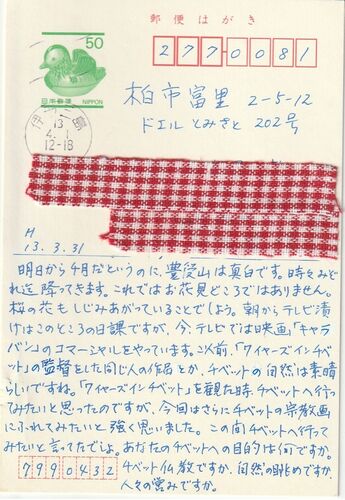 50
日本郵便 NIPPON
郵便はがき
2770081
伊
島
13
4.1
12-18
柏市富里 2-5-12
ドエル とみさと 202号
H
13.3.31
明日から4月だというのに、豊受山は真白です。時々みど
れ迄降ってきます。これではお花見どころではありません。
桜の花もしじみあがっていることでしょう。朝からテレビ漬
けはこのところの日課ですが、今、テレビでは映画「キャラ
バン」のコマーシャルをやっています。これ以前、「ワイヤーズインチベ
ット」の監督をした同じ人の作品とか、チベットの自然は素晴
らしいですね。「ワイヤーズインチベット」を観た時、チベットへ行っ
てみたいと思ったのですが、今回はさらにチベットの宗教画
にふれてみたいと強く思いました。この間チベットへ行って
みたいと言ってたでしょ。あなたのチベットへの目的は何ですか。
チベット仏教ですか、自然の眺めですか、
人々の営みですか。
7990432